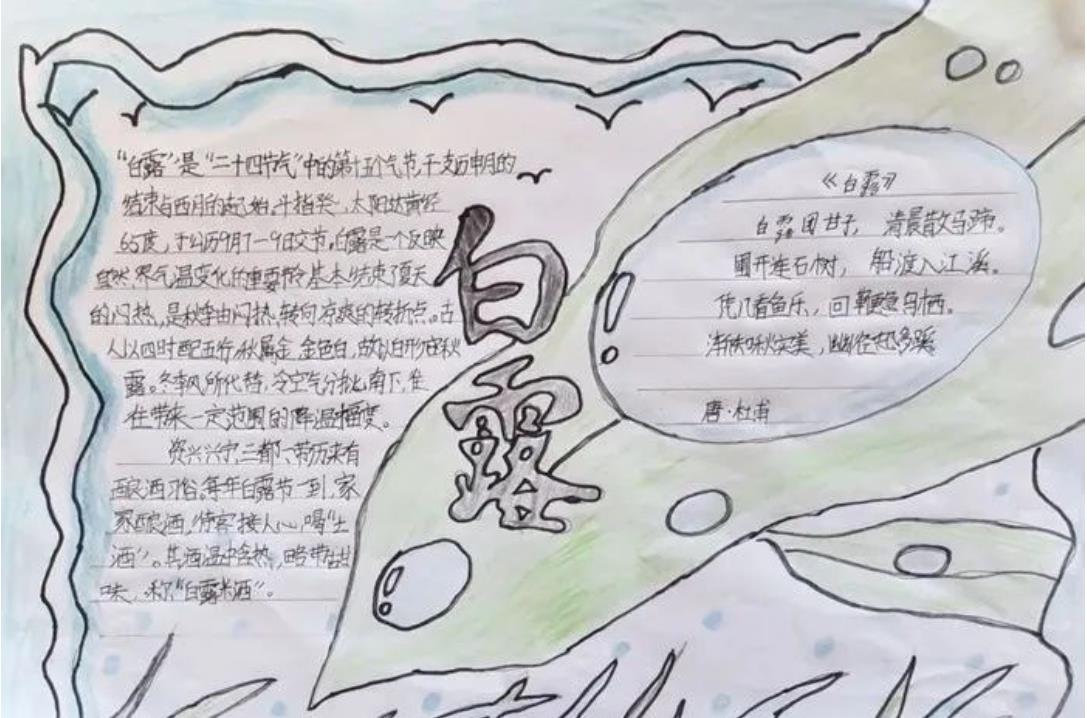 “白露”是“二十四节气”中的第十五个气节,干支历申月的
结束与酉月的起始。斗指癸,太阳达黄经
65度,于公历9月7-9日交节。白露是一个反映
自然界气温变化的重要节令,基本结束了夏天
的闷热,是秋季由闷热转向凉爽的转折点。古
人以四时配五行,秋属金,金色白,故以白形容秋
露。冬季风所代替,冷空气分批南下,往
往带来一定范围的降温幅度。
资兴兴宁、三都一带历来有
酿酒习俗,每年白露节一到,家
家酿酒,待客接人必喝“土
酒”。其酒温中含热,略带甜
味,称“白露米酒”。
白露
《白露》
白露团甘子,清晨散马蹄。
圃开连石树,船渡入江溪。
凭几看鱼乐,回鞭急鸟栖。
渐知秋实美,幽径恐多蹊
唐·杜甫